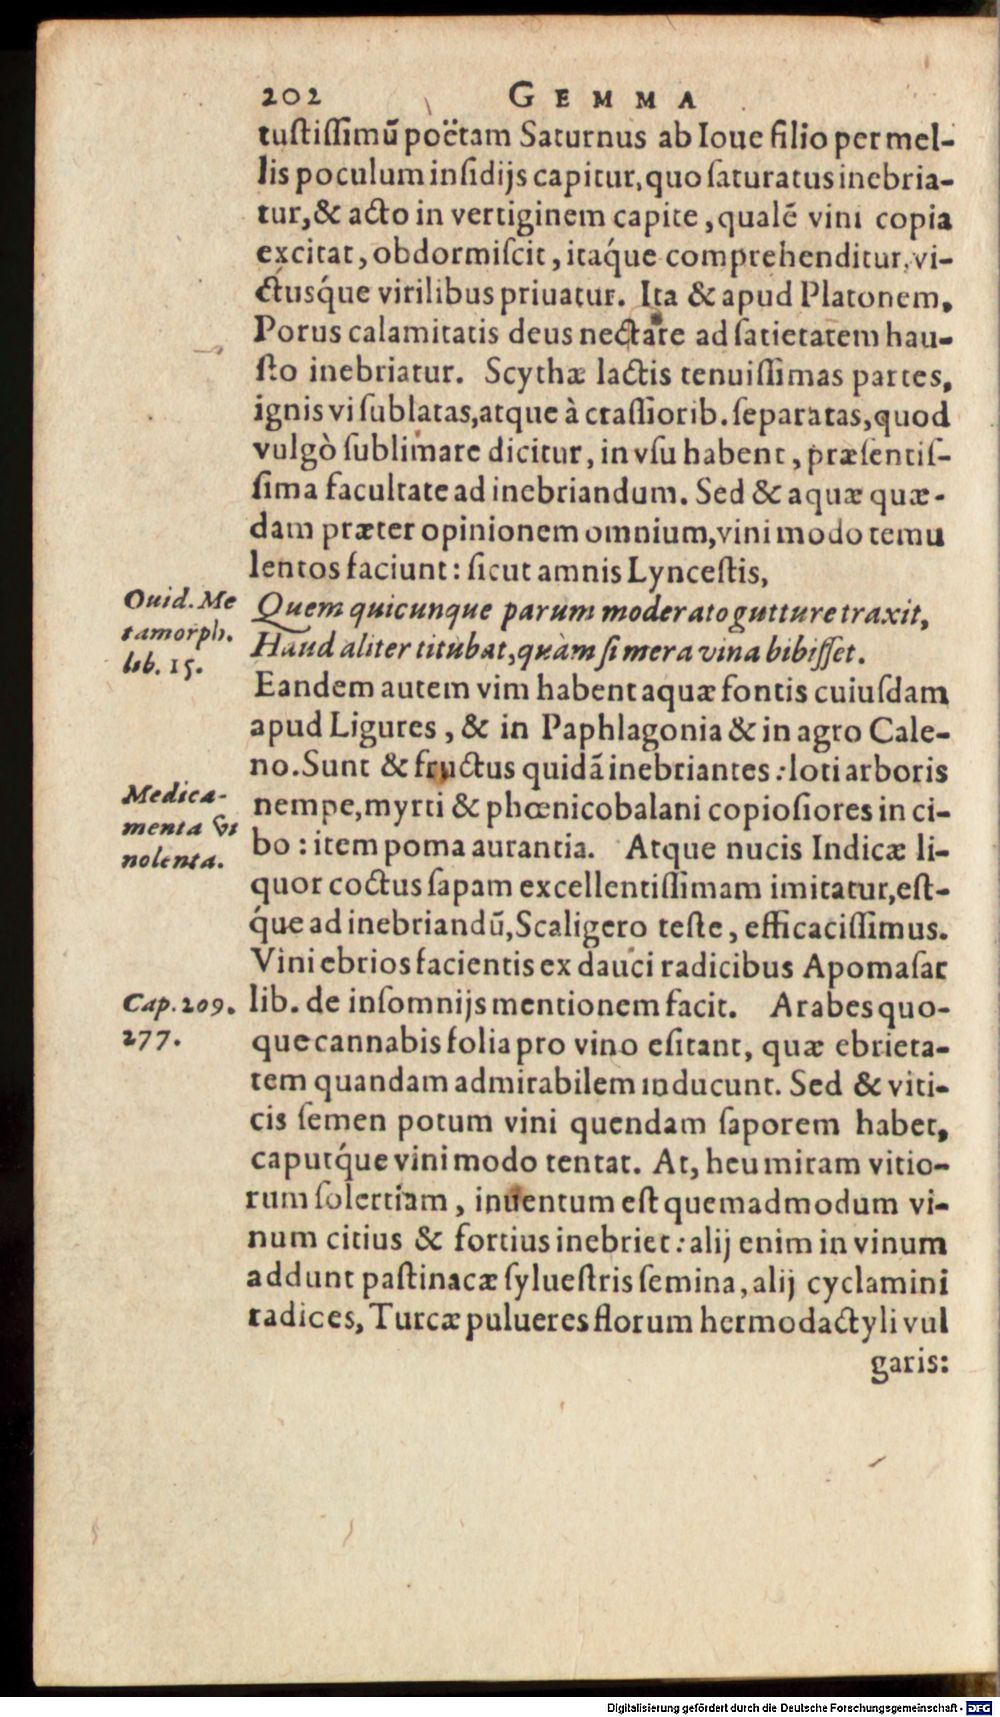 202 GEMMA
tustissimū poëtam Saturnus ab Ioue filio per mel-
lis poculum insidijs capitur, quo saturatus inebria-
tur, & acto in vertiginem capite, qualē vini copia
excitat, obdormiscit, itaq́ue comprehenditur, vi-
ctusq́ue virilibus priuatur. Ita & apud Platonem,
Porus calamitatis deus nectare ad satietatem hau-
sto inebriatur. Scythæ lactis tenuissimas partes,
ignis vi sublatas, atque à crassiorib. separatas, quod
vulgò sublimare dicitur, in vsu habent, præsentis-
sima facultate ad inebriandum. Sed & aquæ quæ-
dam præter opinionem omnium, vini modo temu
lentos faciunt: sicut amnis Lyncestis,
Ouid. Me
tamorph.
lib. 15.
Quem quicunque parum moderato gutture traxit,
Haud aliter titubat, quàm si mera vina bibisset.
Eandem autem vim habent aquæ fontis cuiusdam
apud Ligures, & in Paphlagonia & in agro Cale-
no. Sunt & fructus quidā inebriantes: loti arboris
Medica-
menta vi
nolenta.
nempe, myrti & phœnicobalani copiosiores in ci-
bo: item poma aurantia. Atque nucis Indicæ li-
quor coctus sapam excellentissimam imitatur, est-
q́ue ad inebriandū, Scaligero teste, efficacissimus.
Vini ebrios facientis ex dauci radicibus Apomasar
Cap. 209.
277.
lib. de insomnijs mentionem facit. Arabes quo-
que cannabis folia pro vino esitant, quæ ebrieta-
tem quandam admirabilem inducunt. Sed & viti-
cis semen potum vini quendam saporem habet,
caputq́ue vini modo tentat. At, heu miram vitio-
rum solertiam, inuentum est quemadmodum vi-
num citius & fortius inebriet: alij enim in vinum
addunt pastinacæ syluestris semina, alij cyclamini
radices, Turcæ pulueres florum hermodactyli vul
garis:
Digitalisierung gefördert durch die Deutsche Forschungsgemeinschaft - DFG